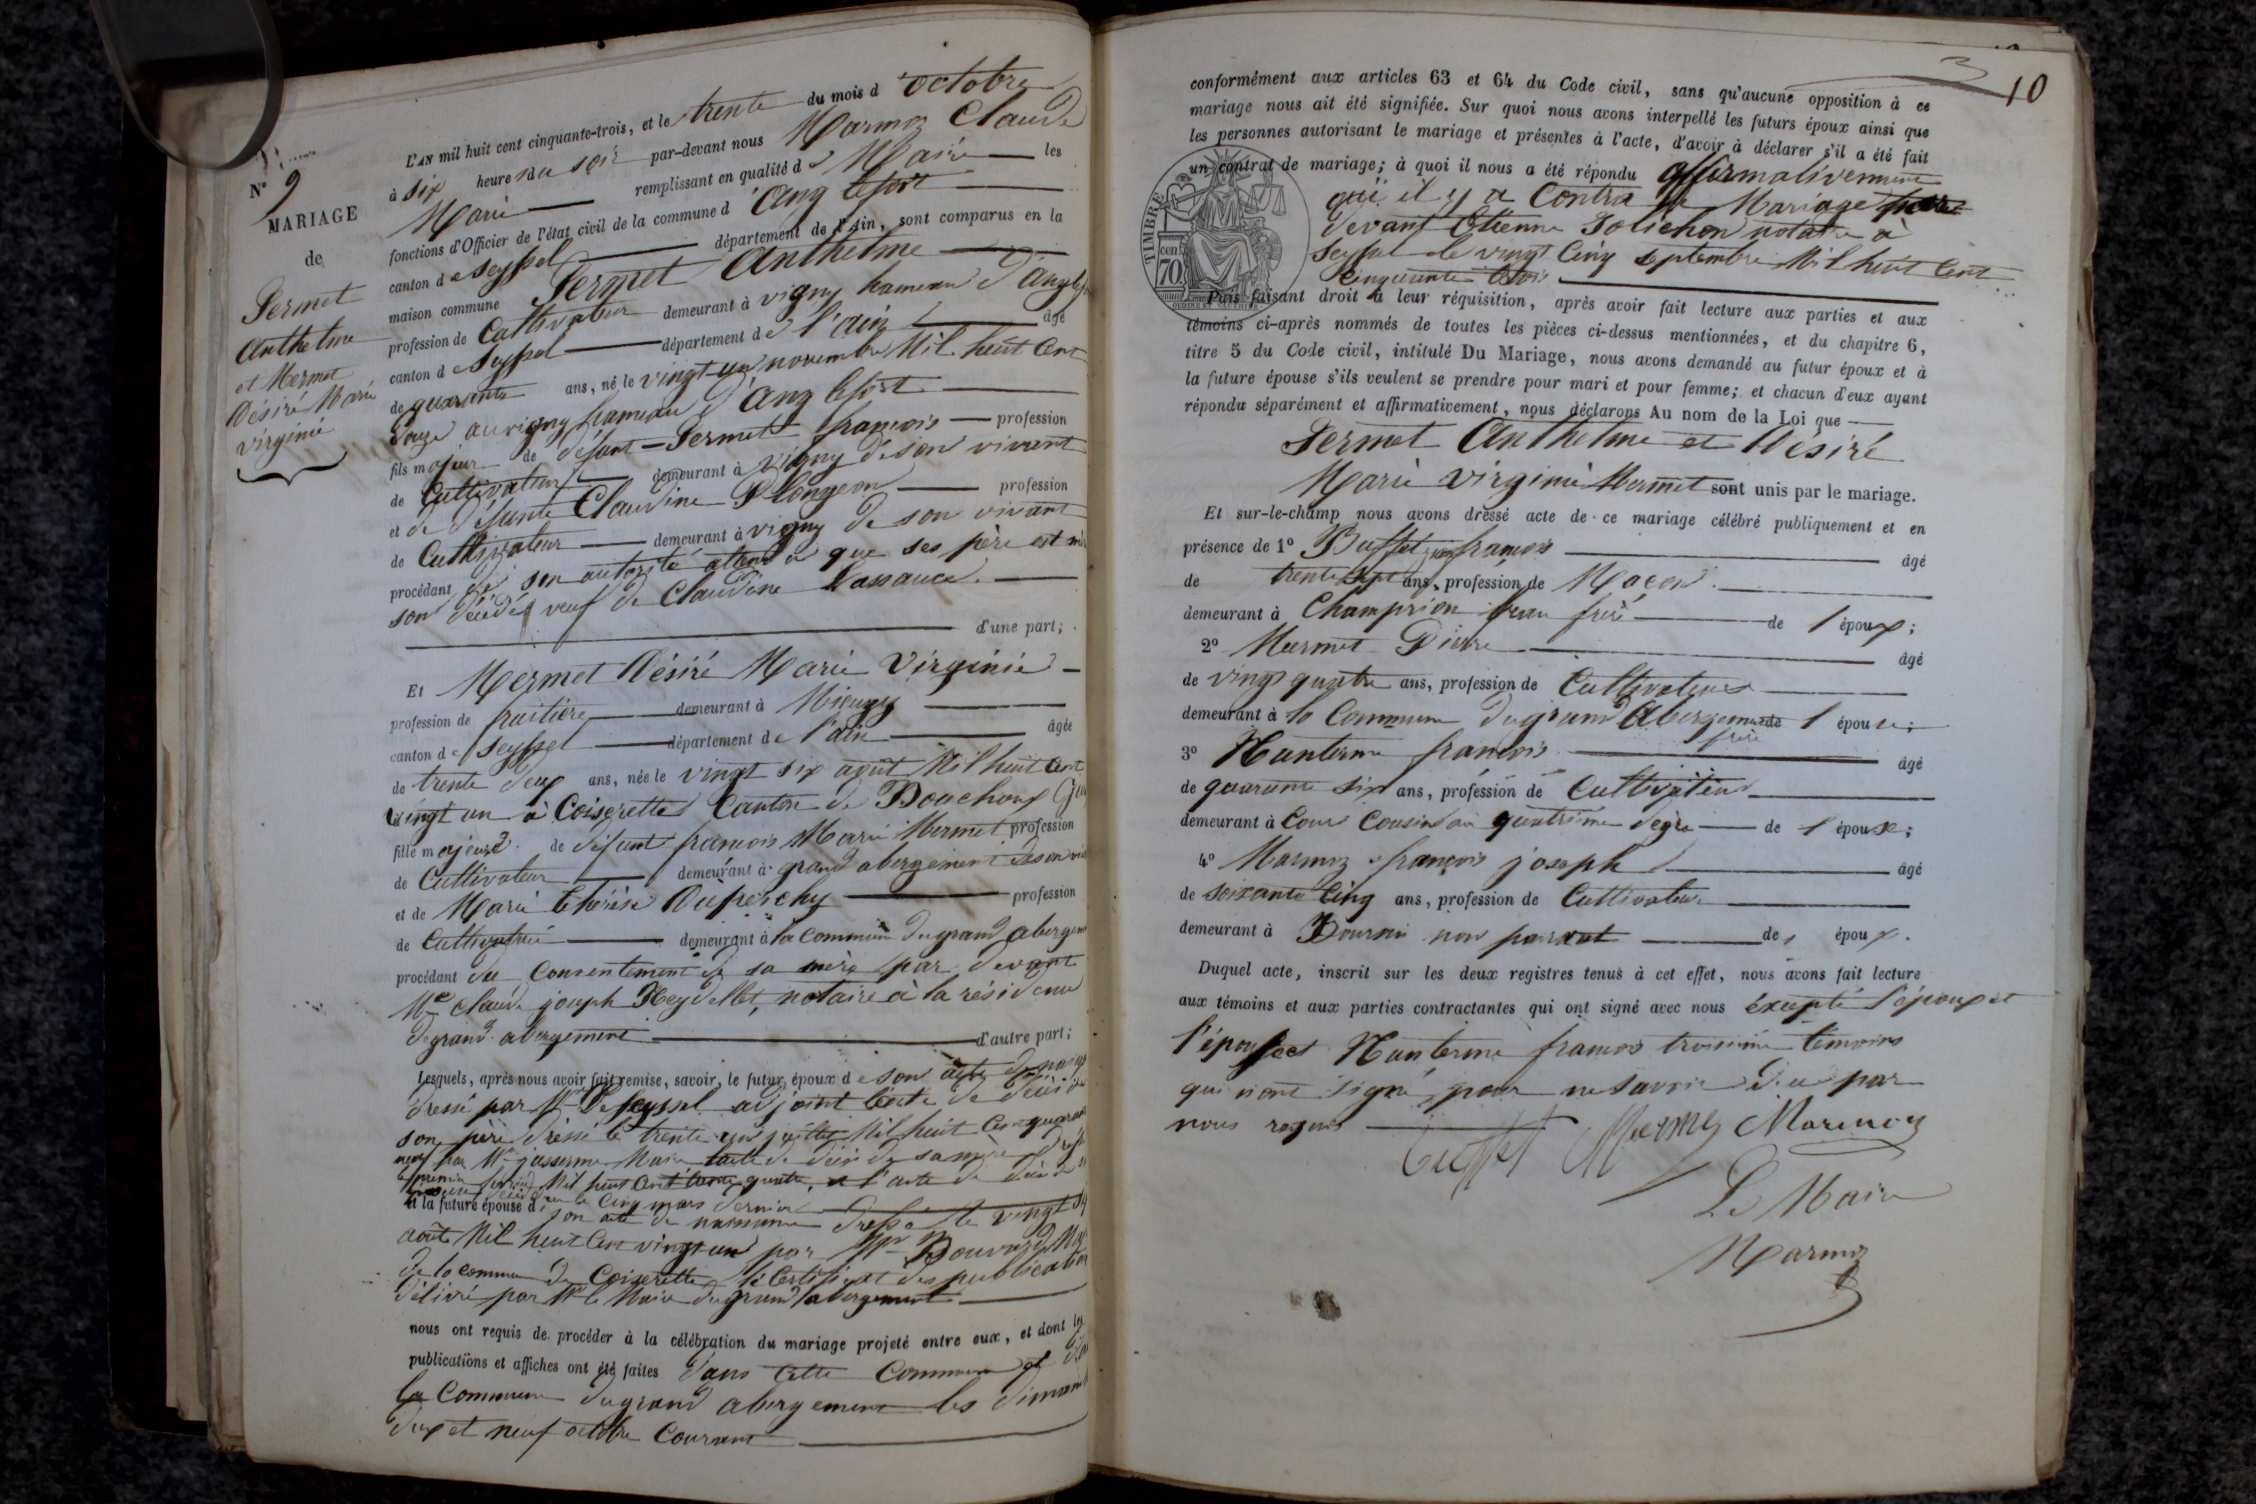 N° 9
MARIAGE
de
Sermet
Anthelme
et Mermet
Désiré Marie
Virginie
L'AN mil huit cent cinquante-trois, et le trente du mois d'octobre
à six heures du soir par-devant nous Marmoz Claude
Marie remplissant en qualité de Maire les
fonctions d'Officier de l'état civil de la commune d'Anglefort
canton de Seyssel département de l'Ain, sont comparus en la
maison commune Sermet Anthelme
profession de Cultivateur demeurant à vigny hameau d'anglefort
canton de Seyssel département de l'ain âgé
de quarante ans, né le vingt un novembre Mil huit Cent
douze au vigny hameau d'Anglefort
fils majeur de défunt Sermet françois profession
de Cultivateur demeurant à vigny de son vivant
et de défunte Claudine Plongeon profession
de Cultivateur demeurant à vigny de son vivant
procédant de son autorité attendu que ses père et mère
son décédés veuf de Claudine
d'une part;
Et Mermet Désiré Marie Virginie
profession de fruitière demeurant à
canton de Seyssel département de l'ain âgée
de trente deux ans, née le vingt six août Mil huit Cent
vingt un à Coiserette Canton de Bouchoux
fille majeure de défunt françois Marie Mermet profession
de Cultivateur demeurant à grand abergement de son
et de Marie thérèse profession
de Cultivatrice demeurant à la commune du grand abergement
procédant du Consentement de sa mère par devant
Me Claude joseph notaire à la résidence
de grand abergement d'autre part;
Lesquels, après nous avoir fait remise, savoir, le futur époux de son acte de
dressé par Mr De seyssel adjoint l'acte de décès de
son père dressé le trente juillet Mil huit Cent
par Mr Maire l'acte de décès de sa mère
Mil huit Cent trente quatre, et l'acte de décès de
le Cinq mars dernier
et la future épouse de son acte de naissance dressé le vingt
août Mil huit Cent vingt un par Mr Bouvard
de la commune de Coiserette le Certificat des publications
délivré par Mr le Maire du grand abergement
nous ont requis de procéder à la célébration du mariage projeté entre eux, et dont les
publications et affiches ont été faites dans cette Commune et
la Commune du grand abergement les
deux et neuf octobre Courant
10
conformément aux articles 63 et 64 du Code civil, sans qu'aucune opposition à ce
mariage nous ait été signifiée. Sur quoi nous avons interpellé les futurs époux ainsi que
les personnes autorisant le mariage et présentes à l'acte, d'avoir à déclarer s'il a été fait
un contrat de mariage; à quoi il nous a été répondu affirmativement
qui il y a Contra de Mariage
devant Etienne notaire à
Seyssel le vingt Cinq septembre Mil huit Cent
Cinquante trois
TIMBRE
70
Puis faisant droit à leur réquisition, après avoir fait lecture aux parties et aux
témoins ci-après nommés de toutes les pièces ci-dessus mentionnées, et du chapitre 6,
titre 5 du Code civil, intitulé Du Mariage, nous avons demandé au futur époux et à
la future épouse s'ils veulent se prendre pour mari et pour femme; et chacun d'eux ayant
répondu séparément et affirmativement, nous déclarons Au nom de la Loi que
Sermet Anthelme et Désiré
Marie Virginie Mermet sont unis par le mariage.
Et sur-le-champ nous avons dressé acte de ce mariage célébré publiquement et en
présence de 1° Buffet françois âgé
de trente sept ans, profession de Maçon
demeurant à beau frère de l'époux;
2° Mermet Pierre âgé
de vingt quatre ans, profession de Cultivateur
demeurant à la Commune du grand Abergement de l'épouse;
frère
3° Nanterme françois âgé
de quarante six ans, profession de Cultivateur
demeurant à Cousin au quatrième degré de l'épouse;
4° Marmoz françois joseph âgé
de soixante Cinq ans, profession de Cultivateur
demeurant à non parent de l'époux.
Duquel acte, inscrit sur les deux registres tenus à cet effet, nous avons fait lecture
aux témoins et aux parties contractantes qui ont signé avec nous éxcepté l'époux et
l'épouse et Nanterme françois troisième témoins
qui n'ont signé pour ne savoir de ce par
nous requis
Buffet Mermet Marmoz
Le Maire
Marmoz